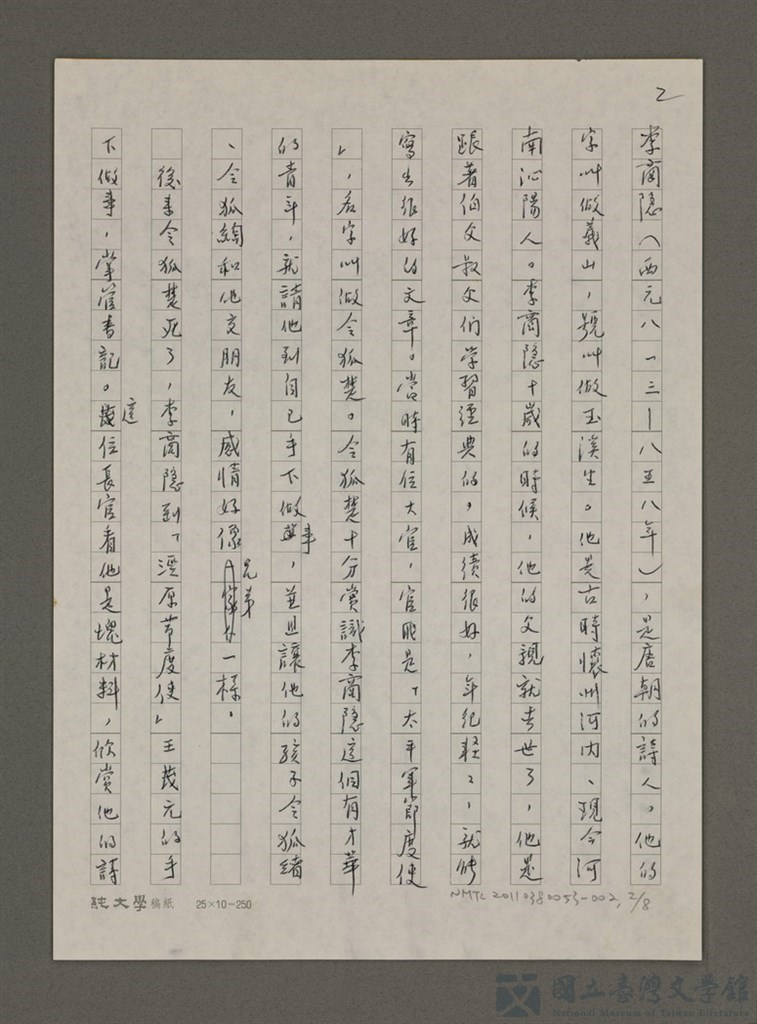 2
李商隐（西元八一三－八五八年），是唐朝的詩人。他的
字叫做義山，號叫做玉溪生。他是古時懷州河內、現今河
南沁陽人。李商隐十歲的時候，他的父親就去世了，他是
跟著伯父叔父们学習經典的，成績很好，年纪輕輕，就能
寫出很好的文章。當時有位大官，官職是「太平軍節度使
」，名字叫做令狐楚。令狐楚十分賞識李商隐這個有才華
的青年，就請他到自己手下做事，並且讓他的孩子令狐緒
、令狐綯和他交朋友，感情好像兄弟一樣。
後来令狐楚死了，李商隐到「涇原节度使」王茂元的手
下做事，掌管书記。這位長官看他是塊材料，欣賞他的詩
純文學稿紙 25×10=250
NMTL 20110380053-002, 2/8
國立臺灣文學館
National Museum of Taiwan Literature